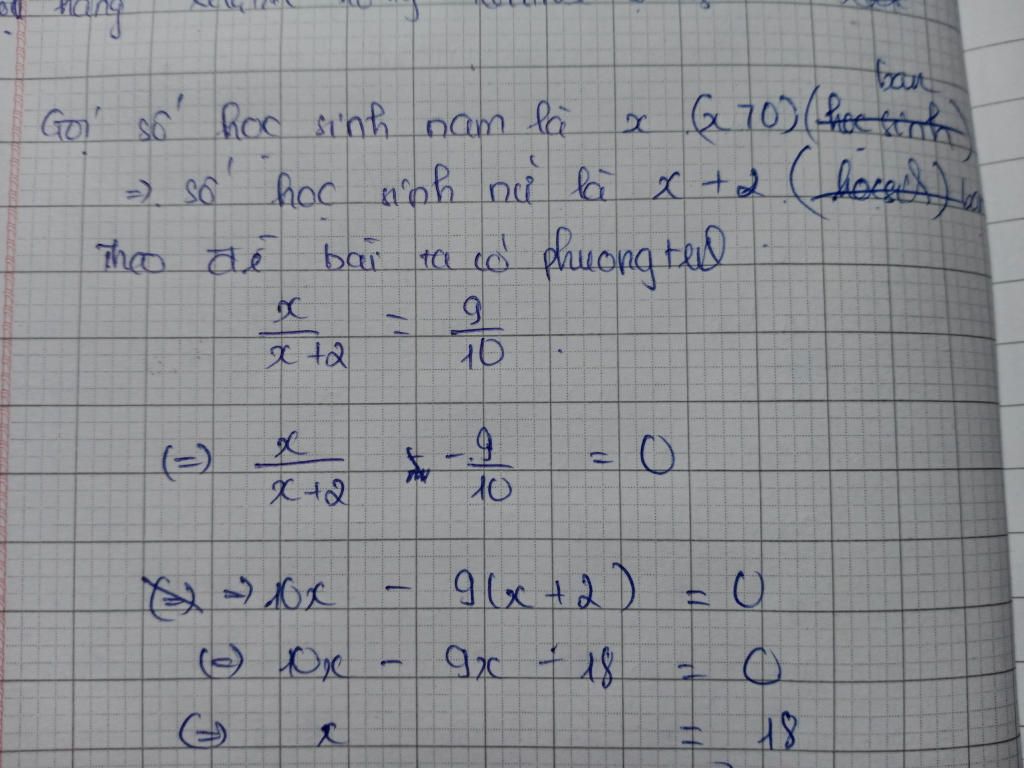 hàng
Gọi số học sinh nam là x (x > 0) (học sinh) bạn
⇒ số học sinh nữ là x + 2 (học sinh) bạn
Theo đề bài ta có phương trình
x/(x+2) = 9/10
(=) x/(x+2) - 9/10 = 0
⇒ 10x - 9(x+2) = 0
(=) 10x - 9x - 18 = 0
(=) x = 18